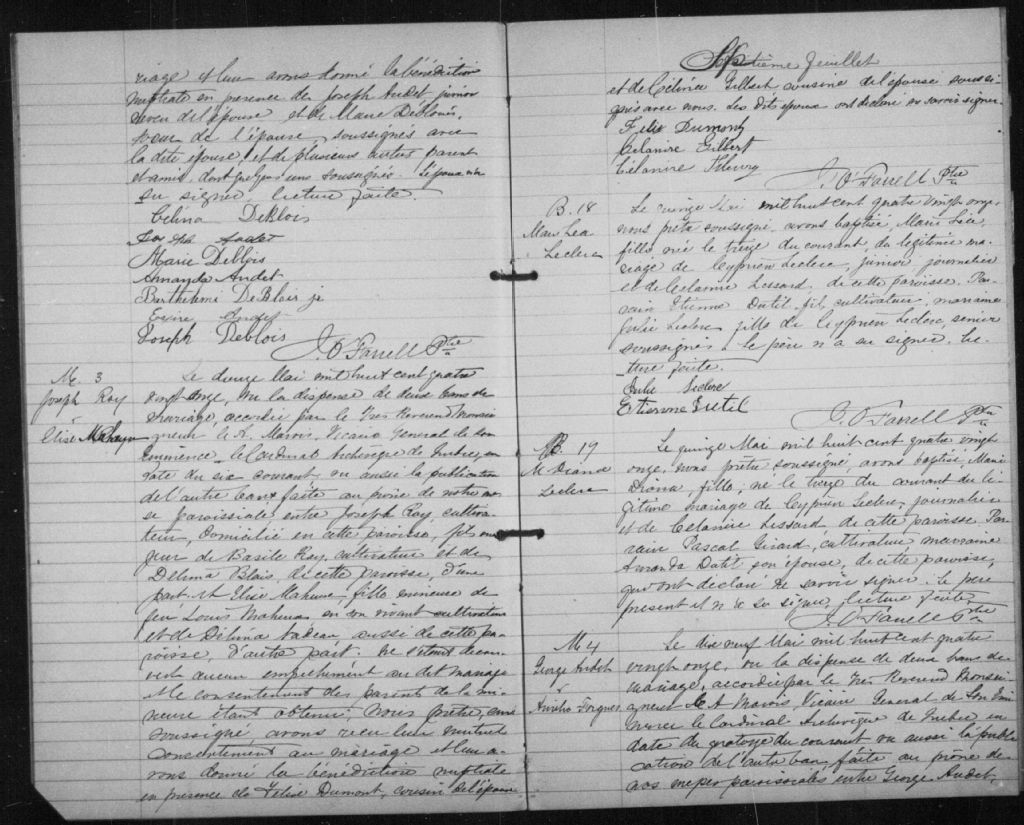 riage et leur avons donné la bénédiction
nuptiale en presence de Joseph Audet junior
neveu de l'épouse, et de Marie Deblois,
soeur de l'épouse, soussignés avec
la dite épouse, et de plusieurs autres parents
et amis dont quelques uns soussignés. Le
su signer. lecture faite.
Celina Deblois
Joseph Audet
Marie Deblois
Amanda Audet
Barthelemi DeBlois jr
Audet
Joseph Deblois
J. O'Farrell Ptre
M. 3
Joseph Roy
&
Elise Maheu
Le douze Mai mil huit cent quatre
vingt onze, vu la dispense de deux bans de
mariage, accordée par le Très Reverend Monsei
gneur C. A. Marois, Vicaire General de Son
Eminence le Cardinal Archevêque de Quebec, en
date du six courant, vu aussi la publication
de l'autre ban faite au prône de notre mes
se paroissiale, entre Joseph Roy, cultiva-
teur, domicilié en cette paroisse, fils ma-
jeur de Basile Roy, cultivateur et de
Délima Blais, de cette paroisse, d'une
part, et Elise Maheux, fille mineure de
feu Louis Maheux, en son vivant cultivateur
et de Délina Nadeau, aussi de cette pa-
roisse, d'autre part. Ne s'étant decou-
vert aucun empêchement au dit mariage
et le consentement des parents de la mi-
neure étant obtenu, Nous prêtre, curé
soussigné, avons reçu leur mutuel
consentement au mariage et leur a-
vons donné la bénédiction nuptiale
en presence de Dumont, cousin de l'époux
Septième feuillet
et de Gilbert cousine de l'épouse soussi-
gnés avec nous. Les dits époux ont declaré ne savoir signer.
Felix Dumont
Celanire Gilbert
Célanire Fleury
J. O'Farrell Ptre
B. 18
Marie Lea
Leclerc
Le quinze Mai mil huit cent quatre vingt onze,
nous prêtre soussigné, avons baptisé, Marie Léa,
fille née le treize du courant, du légitime ma-
riage de Cyprien Leclerc, junior journalier
et de Celanire Lessard, de cette paroisse. Par-
rain Etienne Dutil, fils, cultivateur, marraine
Julie Leclerc fille de Cyprien Leclerc, senior
soussignés. Le père n'a su signer. Lec-
ture faite.
Julie Leclerc
Etienne Dutil
J. O'Farrell Ptre
B. 19
M. Diana
Leclerc
Le quinze Mai mil huit cent quatre vingt
onze, nous prêtre soussigné, avons baptisé, Marie
Diana, fille, né le treize du courant du lé-
gitime mariage de Cyprien Leclerc, journalier
et de Celanire Lessard, de cette paroisse. Par-
rain Pascal Girard, cultivateur, marraine
Amanda Dutil son épouse, de cette paroisse,
qui ont declaré ne savoir signer. Le père
present et n'a su signer, lecture faite.
J. O'Farrell Ptre
M 4
George Audet
&
Aurélie Forgues
Le dix neuf Mai mil huit cent quatre
vingt onze, vu la dispense de deux bans de
mariage, accordée par le Très Reverend Monsei
gneur C. A. Marois, Vicaire General de Son Emi
nence le Cardinal Archevêque de Quebec en
date du quatorze du courant vu aussi la publi
cation de l'autre ban faite au prône de
nos messes paroissiales, entre George Audet,